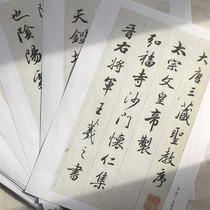 大唐三藏聖教序
太宗文皇帝製
弘福寺沙門懷仁集
晉右將軍王羲之書
天鑑
也陰陽